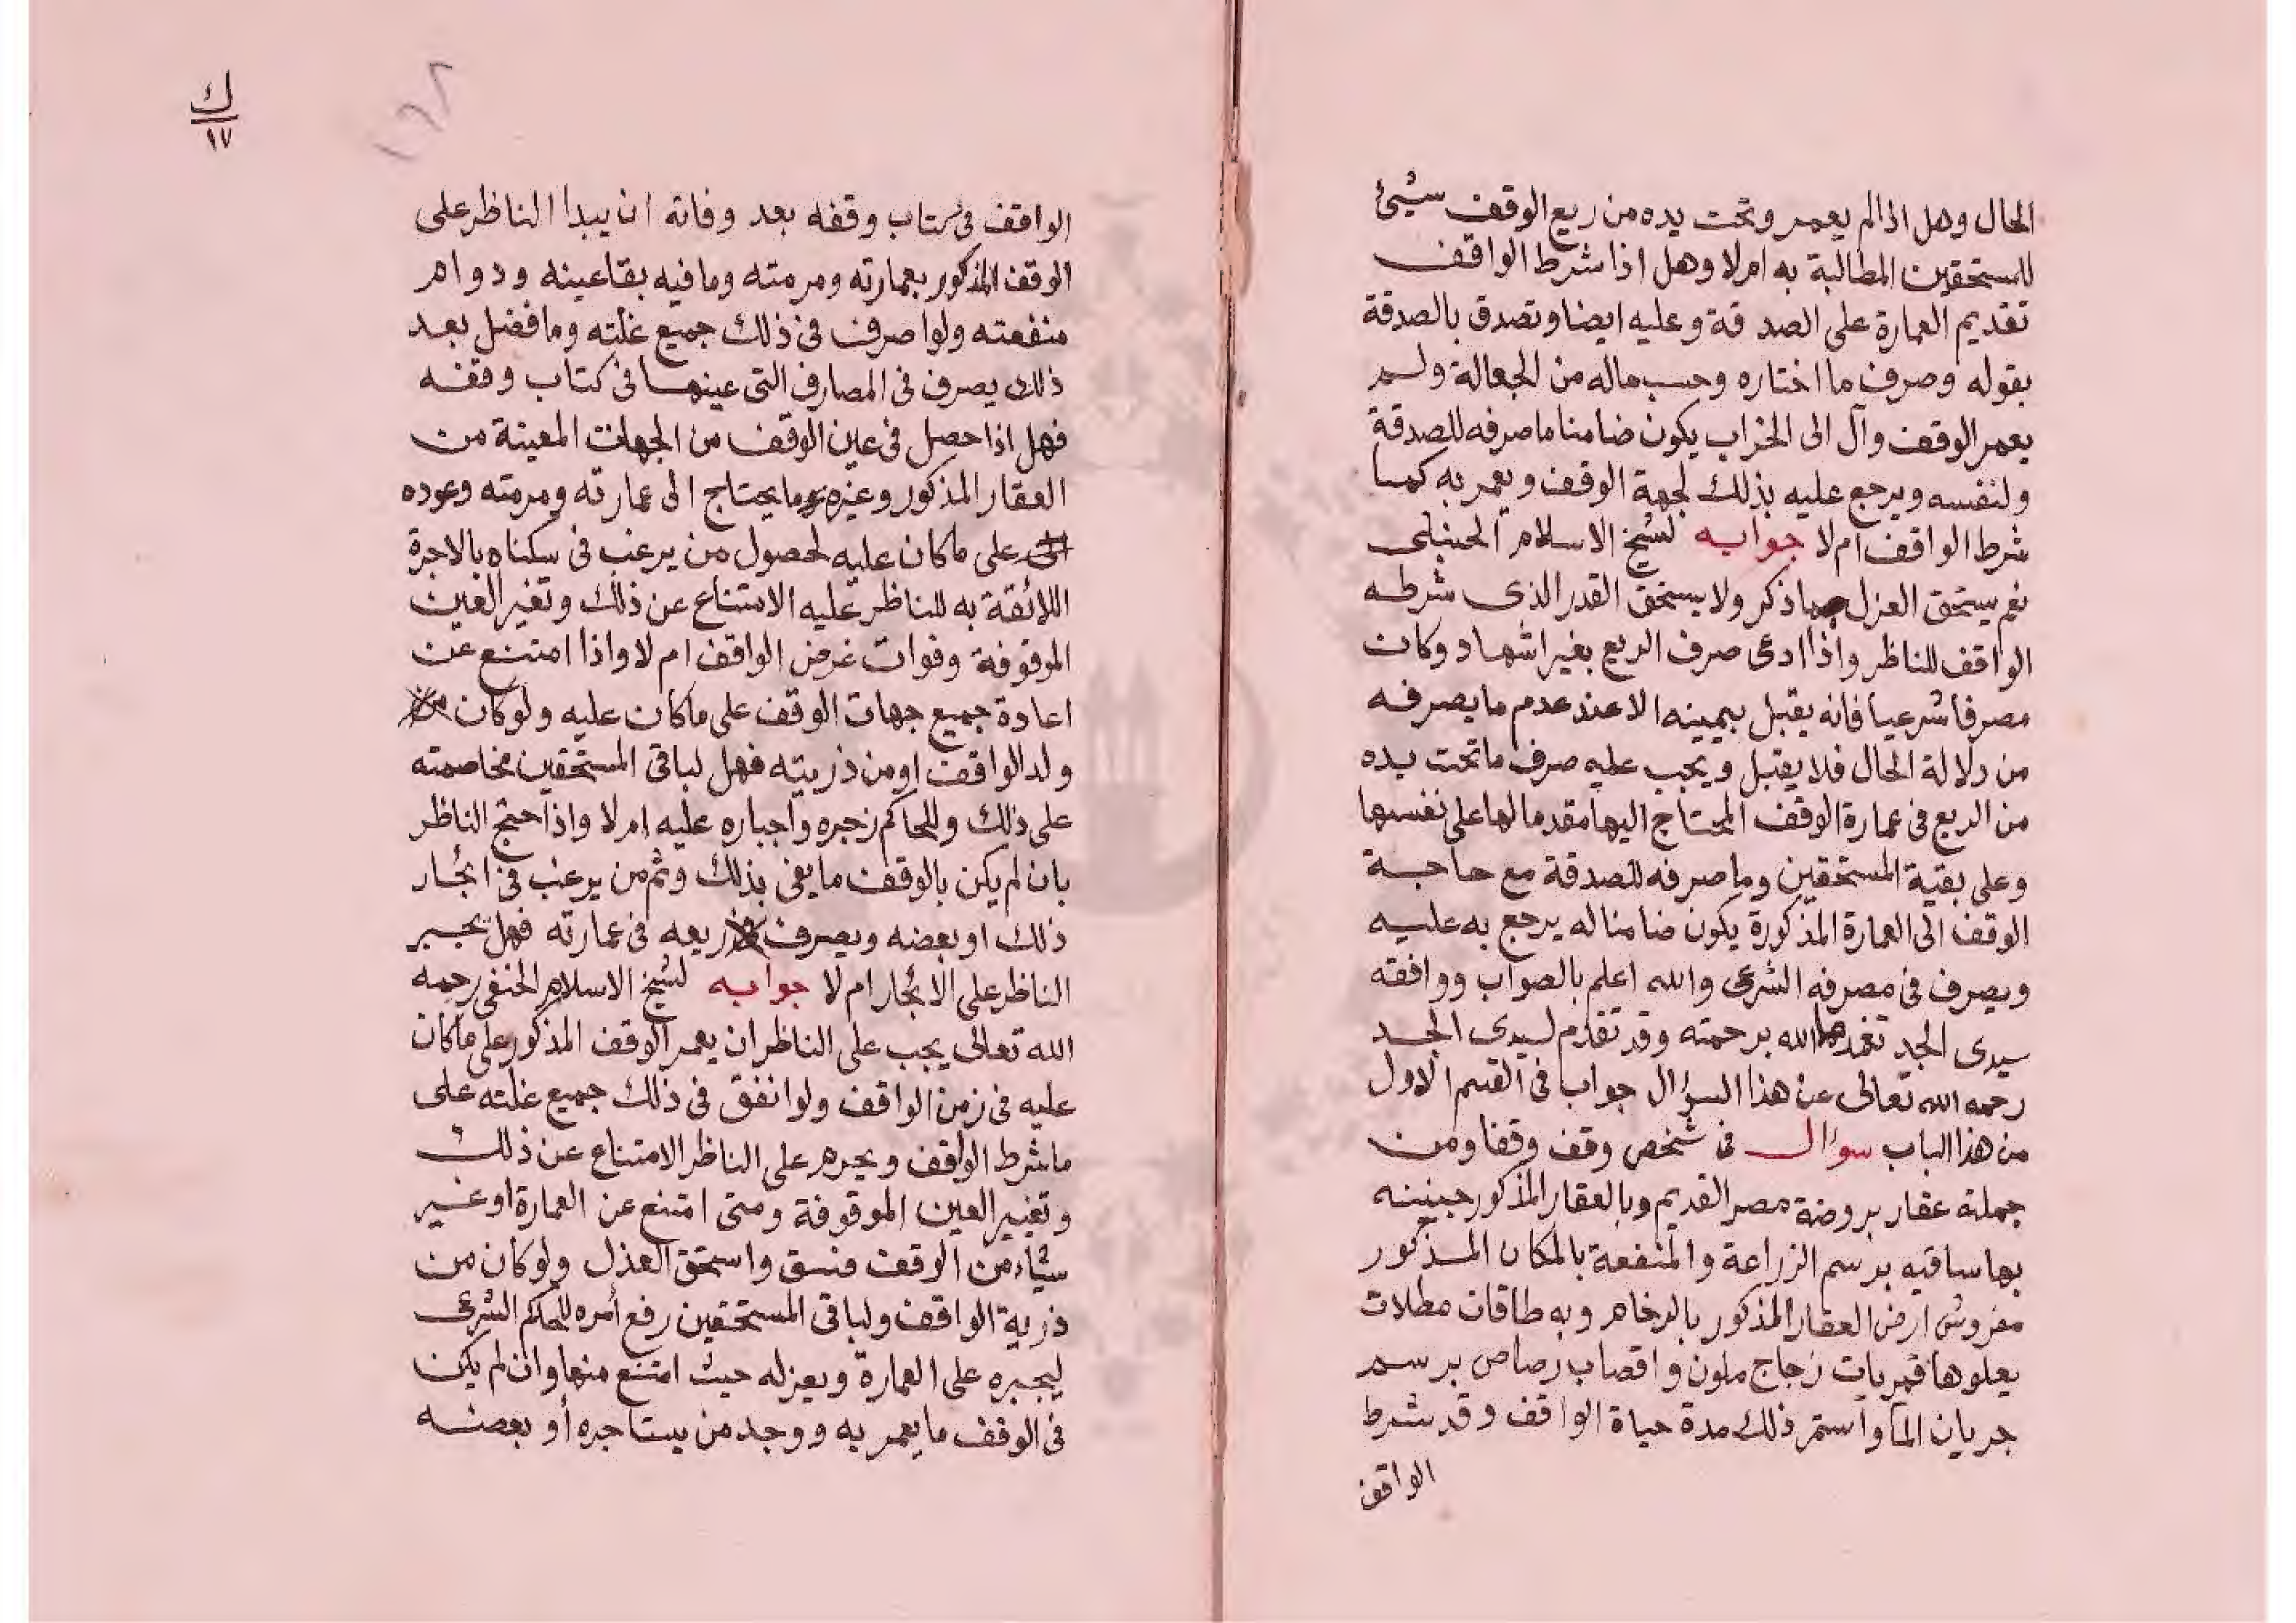 الحال وهل اذا لم يعمر وتحت يده من ريع الوقف شيئ
للمستحقين المطالبة به ام لا وهل اذا شرط الواقف
تقديم العمارة على الصدقة وعليه ايضا وتصدق بالصدقة
بقوله وصرف ما اختاره وحسب ماله من الجعالة ولم
يعمر الوقف وآل الى الخراب يكون ضامنا ما صرفه للصدقة
ولنفسه ويرجع عليه بذلك لجهة الوقف ويعمر به كما
شرط الواقف ام لا جوابه لشيخ الاسلام الحنبلى
نعم يستحق العزل بما ذكر ولا يستحق القدر الذى شرطه
الواقف للناظر واذا ادعى صرف الريع بغير اشهاد وكان
مصرفا شرعيا فانه يقبل بيمينه الا عند عدم ما يصرفه
من دلالة الحال فلا يقبل ويجب عليه صرف ما تحت يده
من الريع فى عمارة الوقف المحتاج اليها مقدما لها على نفسها
وعلى بقية المستحقين وما صرفه للصدقة مع حاجة
الوقف الى العمارة المذكورة يكون ضامنا له يرجع به عليه
ويصرف فى مصرفه الشرعى والله اعلم بالصواب ووافقه
سيدى الجد تغمدهما الله برحمته وقد تقدم لسيدى الجد
رحمه الله تعالى عن هذا السؤال جواب فى القسم الاول
من هذا الباب سؤال فى شخص وقف وقفا ومن
جملته عقار بروضة مصر القديم وبالعقار المذكور جنينه
بها ساقيه برسم الزراعة والمنفعة بالمكان المذكور
مفروش ارض العقار المذكور بالرخام وبه طاقات مطلات
يعلوها قمريات زجاج ملون واقصاب رصاص برسم
جريان الماء واستمر ذلك مدة حياة الواقف وقد شرط
الواقف
ك
١٧
١٦٢
الواقف فى كتاب وقفه بعد وفاته ان يبدا الناظر على
الوقف المذكور بعمارته ومرمته وما فيه بقا عينه ودوام
منفعته ولو اصرف فى ذلك جميع غلته وما فضل بعد
ذلك يصرف فى المصارف التى عينها فى كتاب وقفه
فهل اذا حصل فى عين الوقف من الجهات المعينة من
العقار المذكور وغيره ما يحتاج الى عمارته ومرمته وعوده
على ما كان عليه لحصول من يرغب فى سكناه بالاجرة
اللائقة به للناظر عليه الامتناع عن ذلك وتغير العين
الموقوفة وفوات غرض الواقف ام لا واذا امتنع عن
اعادة جميع جهات الوقف على ما كان عليه ولو كان من
ولد الواقف او من ذريته فهل لباقى المستحقين مخاصمته
على ذلك وللحاكم زجره واجباره عليه ام لا واذا احتج الناظر
بان لم يكن بالوقف ما يفى بذلك وثم من يرغب فى ايجار
ذلك او بعضه ويصرف ريعه فى عمارته فهل يجبر
الناظر على الايجار ام لا جوابه لشيخ الاسلام الحنفى رحمه
الله تعالى يجب على الناظر ان يعمر الوقف المذكور على ما كان
عليه فى زمن الواقف ولو انفق فى ذلك جميع غلته على
ما شرط الواقف ويحرم على الناظر الامتناع عن ذلك
وتغيير العين الموقوفة ومتى امتنع عن العمارة او غير
شياء من الوقف فسق واستحق العذل ولو كان من
ذرية الواقف ولباقى المستحقين رفع أمره للحاكم الشرعى
ليجبره على العمارة ويعزله حيث امتنع منها وان لم يكن
فى الوقف ما يعمر به ووجد من يستاجره أو بعضه